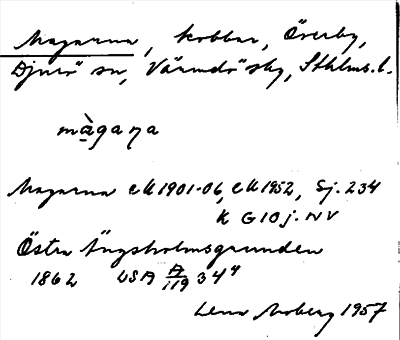 Magarna, kobbar, Överby,
Djurö sn, Värmdö skg, Sthlms. l.
màgaṇa
Magarna EK 1901-06, EK 1952, Sj. 234
K G10 j. NV
Östra Ängsholmsgrunden
1862 LSA A 119 34 4
Lena Moberg 1957